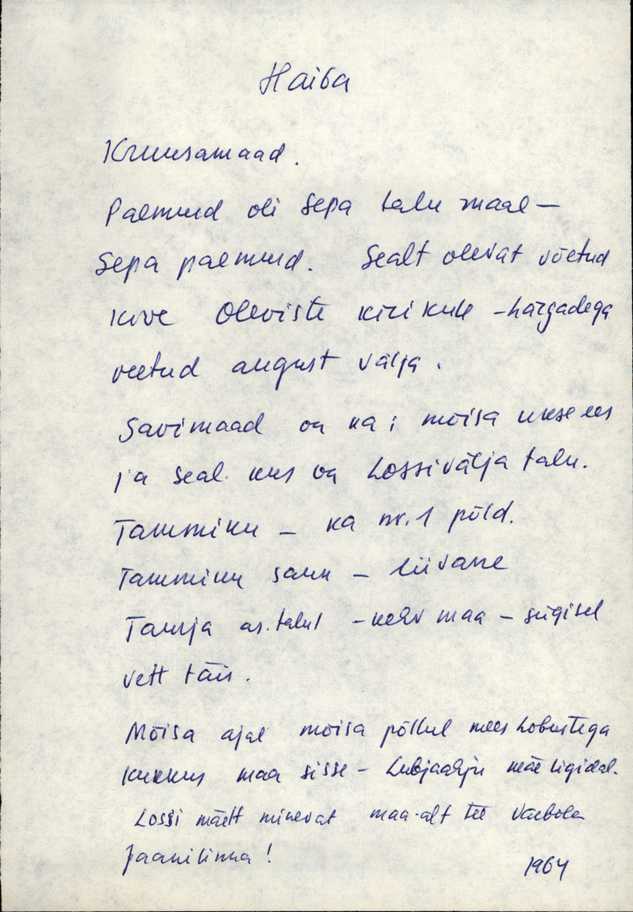 Haiba
Kruusamaad.
Paemurd oli Sepa talu maal –
Sepa paemurd. Sealt olevat võetud
kive Oleviste kirikule – härgadega
veetud august välja.
Savimaad on ka; mõisa ukse ees
ja seal. kus on Lossivälja talu.
Tammiku – ka nr. 1 põld.
Tammiku saun – liivane
Tamja as. talul – kehv maa – sügisel
vett täis.
Mõisa ajal mõisa põllul mees hobustega
kukkus maa sisse – Lubjaahju mäe ligidal.
Lossi mäelt minevat maa-alt tee Varbola
Jaanilinna!
1964